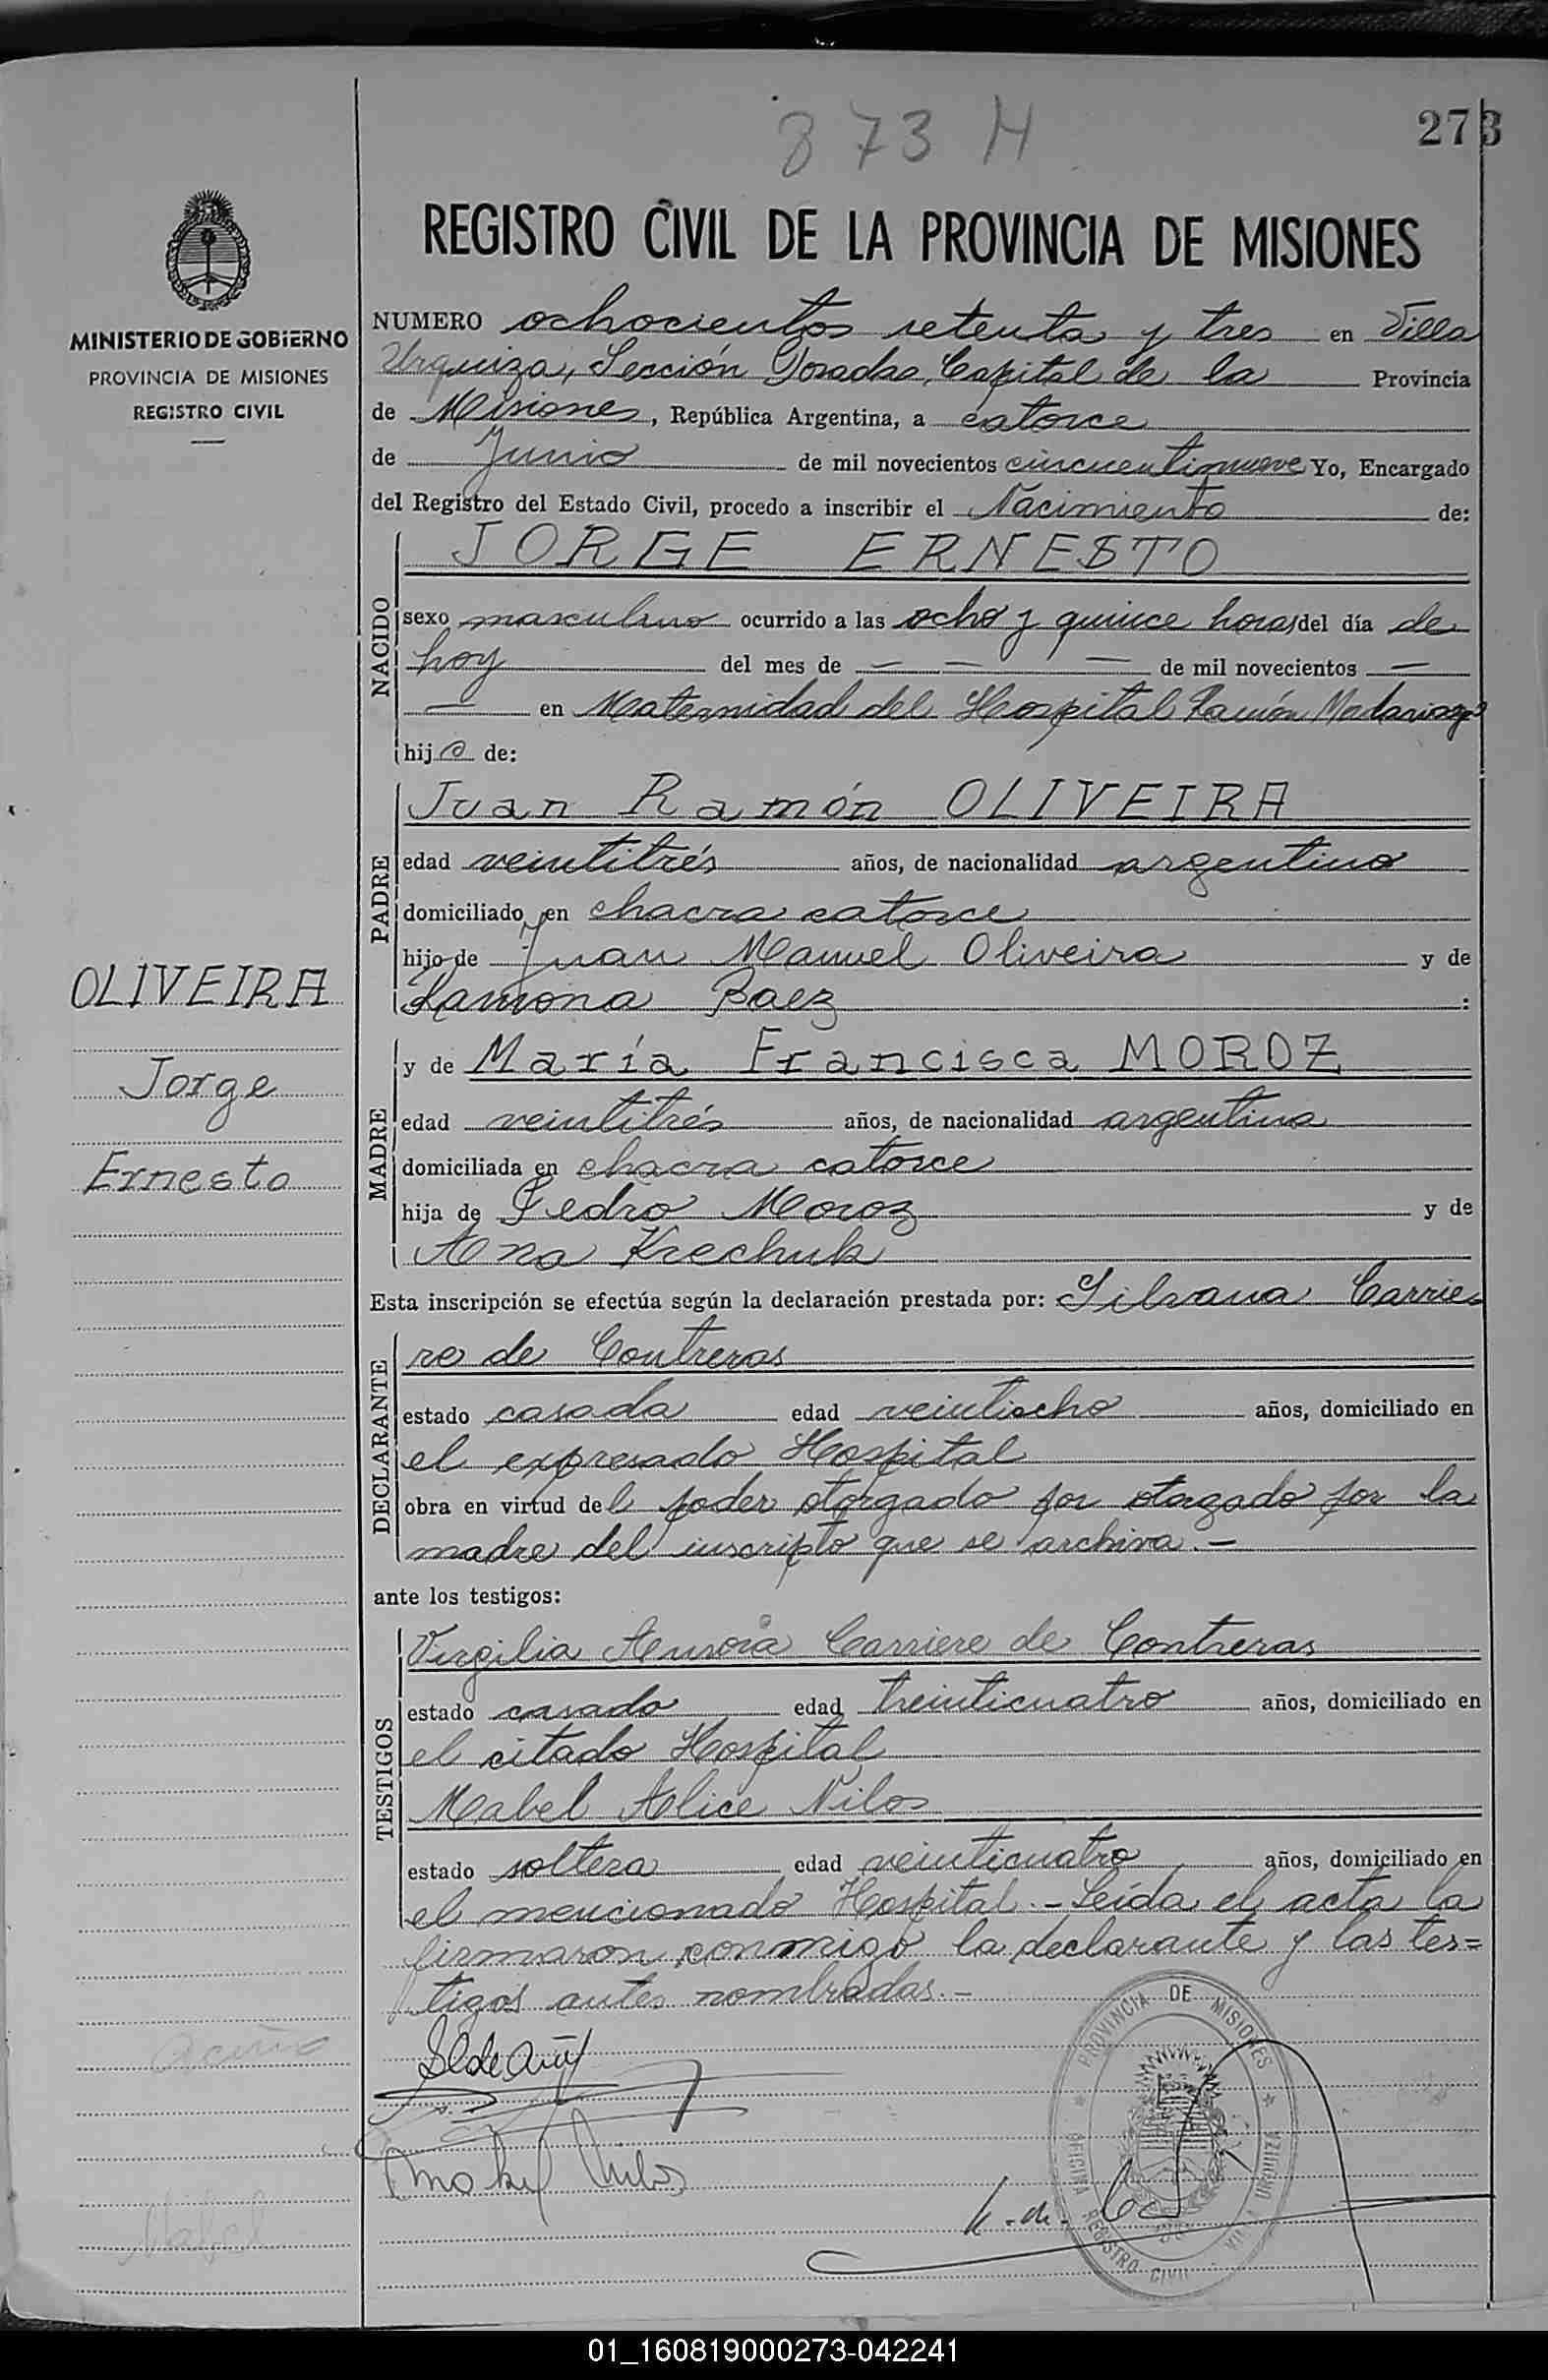 873 H
273
REGISTRO CIVIL DE LA PROVINCIA DE MISIONES
MINISTERIO DE GOBIERNO
PROVINCIA DE MISIONES
REGISTRO CIVIL
NUMERO ochocientos setenta y tres en Villa
Urquiza, Sección Posadas, Capital de la Provincia
de Misiones, República Argentina, a catorce
de Junio de mil novecientos cincuentinueve Yo, Encargado
del Registro del Estado Civil, procedo a inscribir el Nacimiento de:
NACIDO
JORGE ERNESTO
sexo masculino ocurrido a las ocho y quince horas del día de
hoy del mes de — — — de mil novecientos —
— en Maternidad del Hospital Ramón Madariaga
hijo de:
PADRE
Juan Ramón OLIVEIRA
edad veintitrés años, de nacionalidad argentino
domiciliado en chacra catorce
hijo de Juan Manuel Oliveira y de
Ramona Baez :
OLIVEIRA
Jorge
Ernesto
MADRE
y de María Francisca MOROZ
edad veintitrés años, de nacionalidad argentina
domiciliada en chacra catorce
hija de Pedro Moroz y de
Ana Krechuk
Esta inscripción se efectúa según la declaración prestada por: Silvana Carrie-
DECLARANTE
re de Contreras
estado casada edad veintiocho años, domiciliado en
el expresado Hospital
obra en virtud del poder otorgado por otorgado por la
madre del inscripto que se archiva.-
ante los testigos:
TESTIGOS
Virgilia Aurora Carriere de Contreras
estado casada edad treinticuatro años, domiciliado en
el citado Hospital
Mabel Alice Nilos
estado soltera edad veinticuatro años, domiciliado en
el mencionado Hospital.- Leída el acta la
firmaron conmigo la declarante y las tes=
tigos antes nombradas.-
PROVINCIA DE MISIONES
OFICINA REGISTRO CIVIL VILLA URQUIZA
01_160819000273-042241